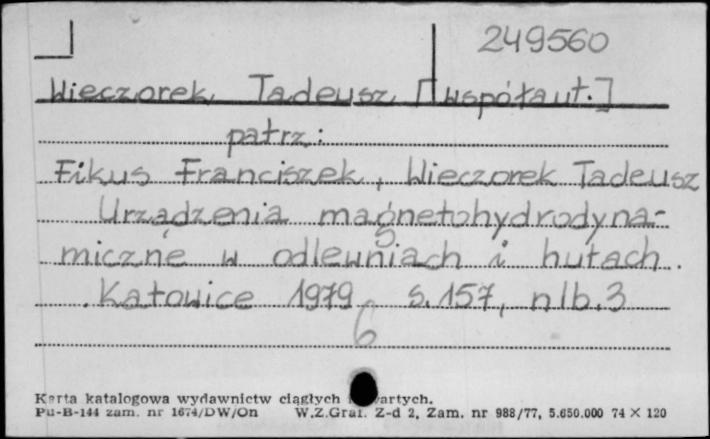 249560
Wieczorek Tadeusz [współaut.]
patrz:
Fikus Franciszek, Wieczorek Tadeusz
Urządzenia magnetohydrodyna-
miczne w odlewniach i hutach.
Katowice 1979 s. 157, nlb. 3
6
Karta katalogowa wydawnictw ciągłych i
Pu-B-144 zam. nr 1674/DW/On W.Z.Graf. Z-d 2, Zam. nr 988/77, 5.650.000 74 X 120